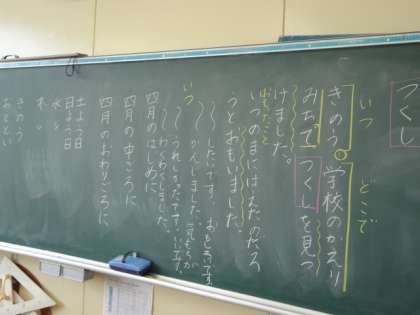 つくし
いつ どこで
きのう、学校のかえり
みちで、つくしを見つ
けました。
いつのまにはえたのだろ
うとおもいました。
〜したいです。おもしろいです。
〜がんしました。気もちが
〜うれしかったです。いいです。
〜わくわくしました。
いつ
四月のはじめに
四月の中ごろに
四月のおわりごろに
土よう日
日よう日
水〃
木〃
きのう
おととい